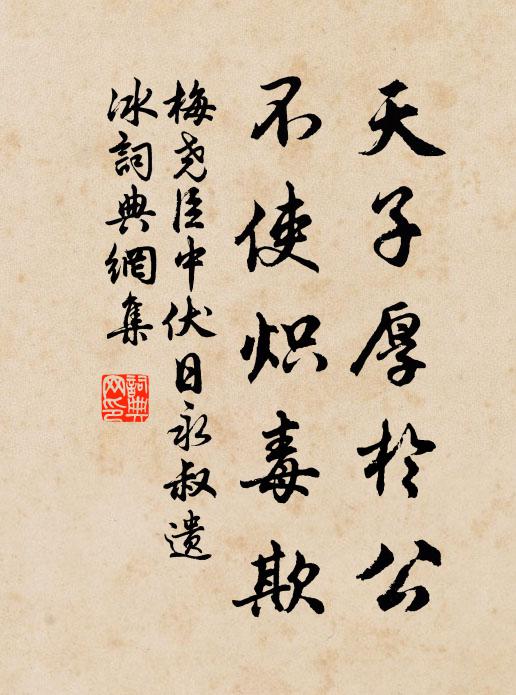 天子厚於公
不使炽毒欺
梅尧臣中伏日永叔遗
冰詞典網集
詞典网印